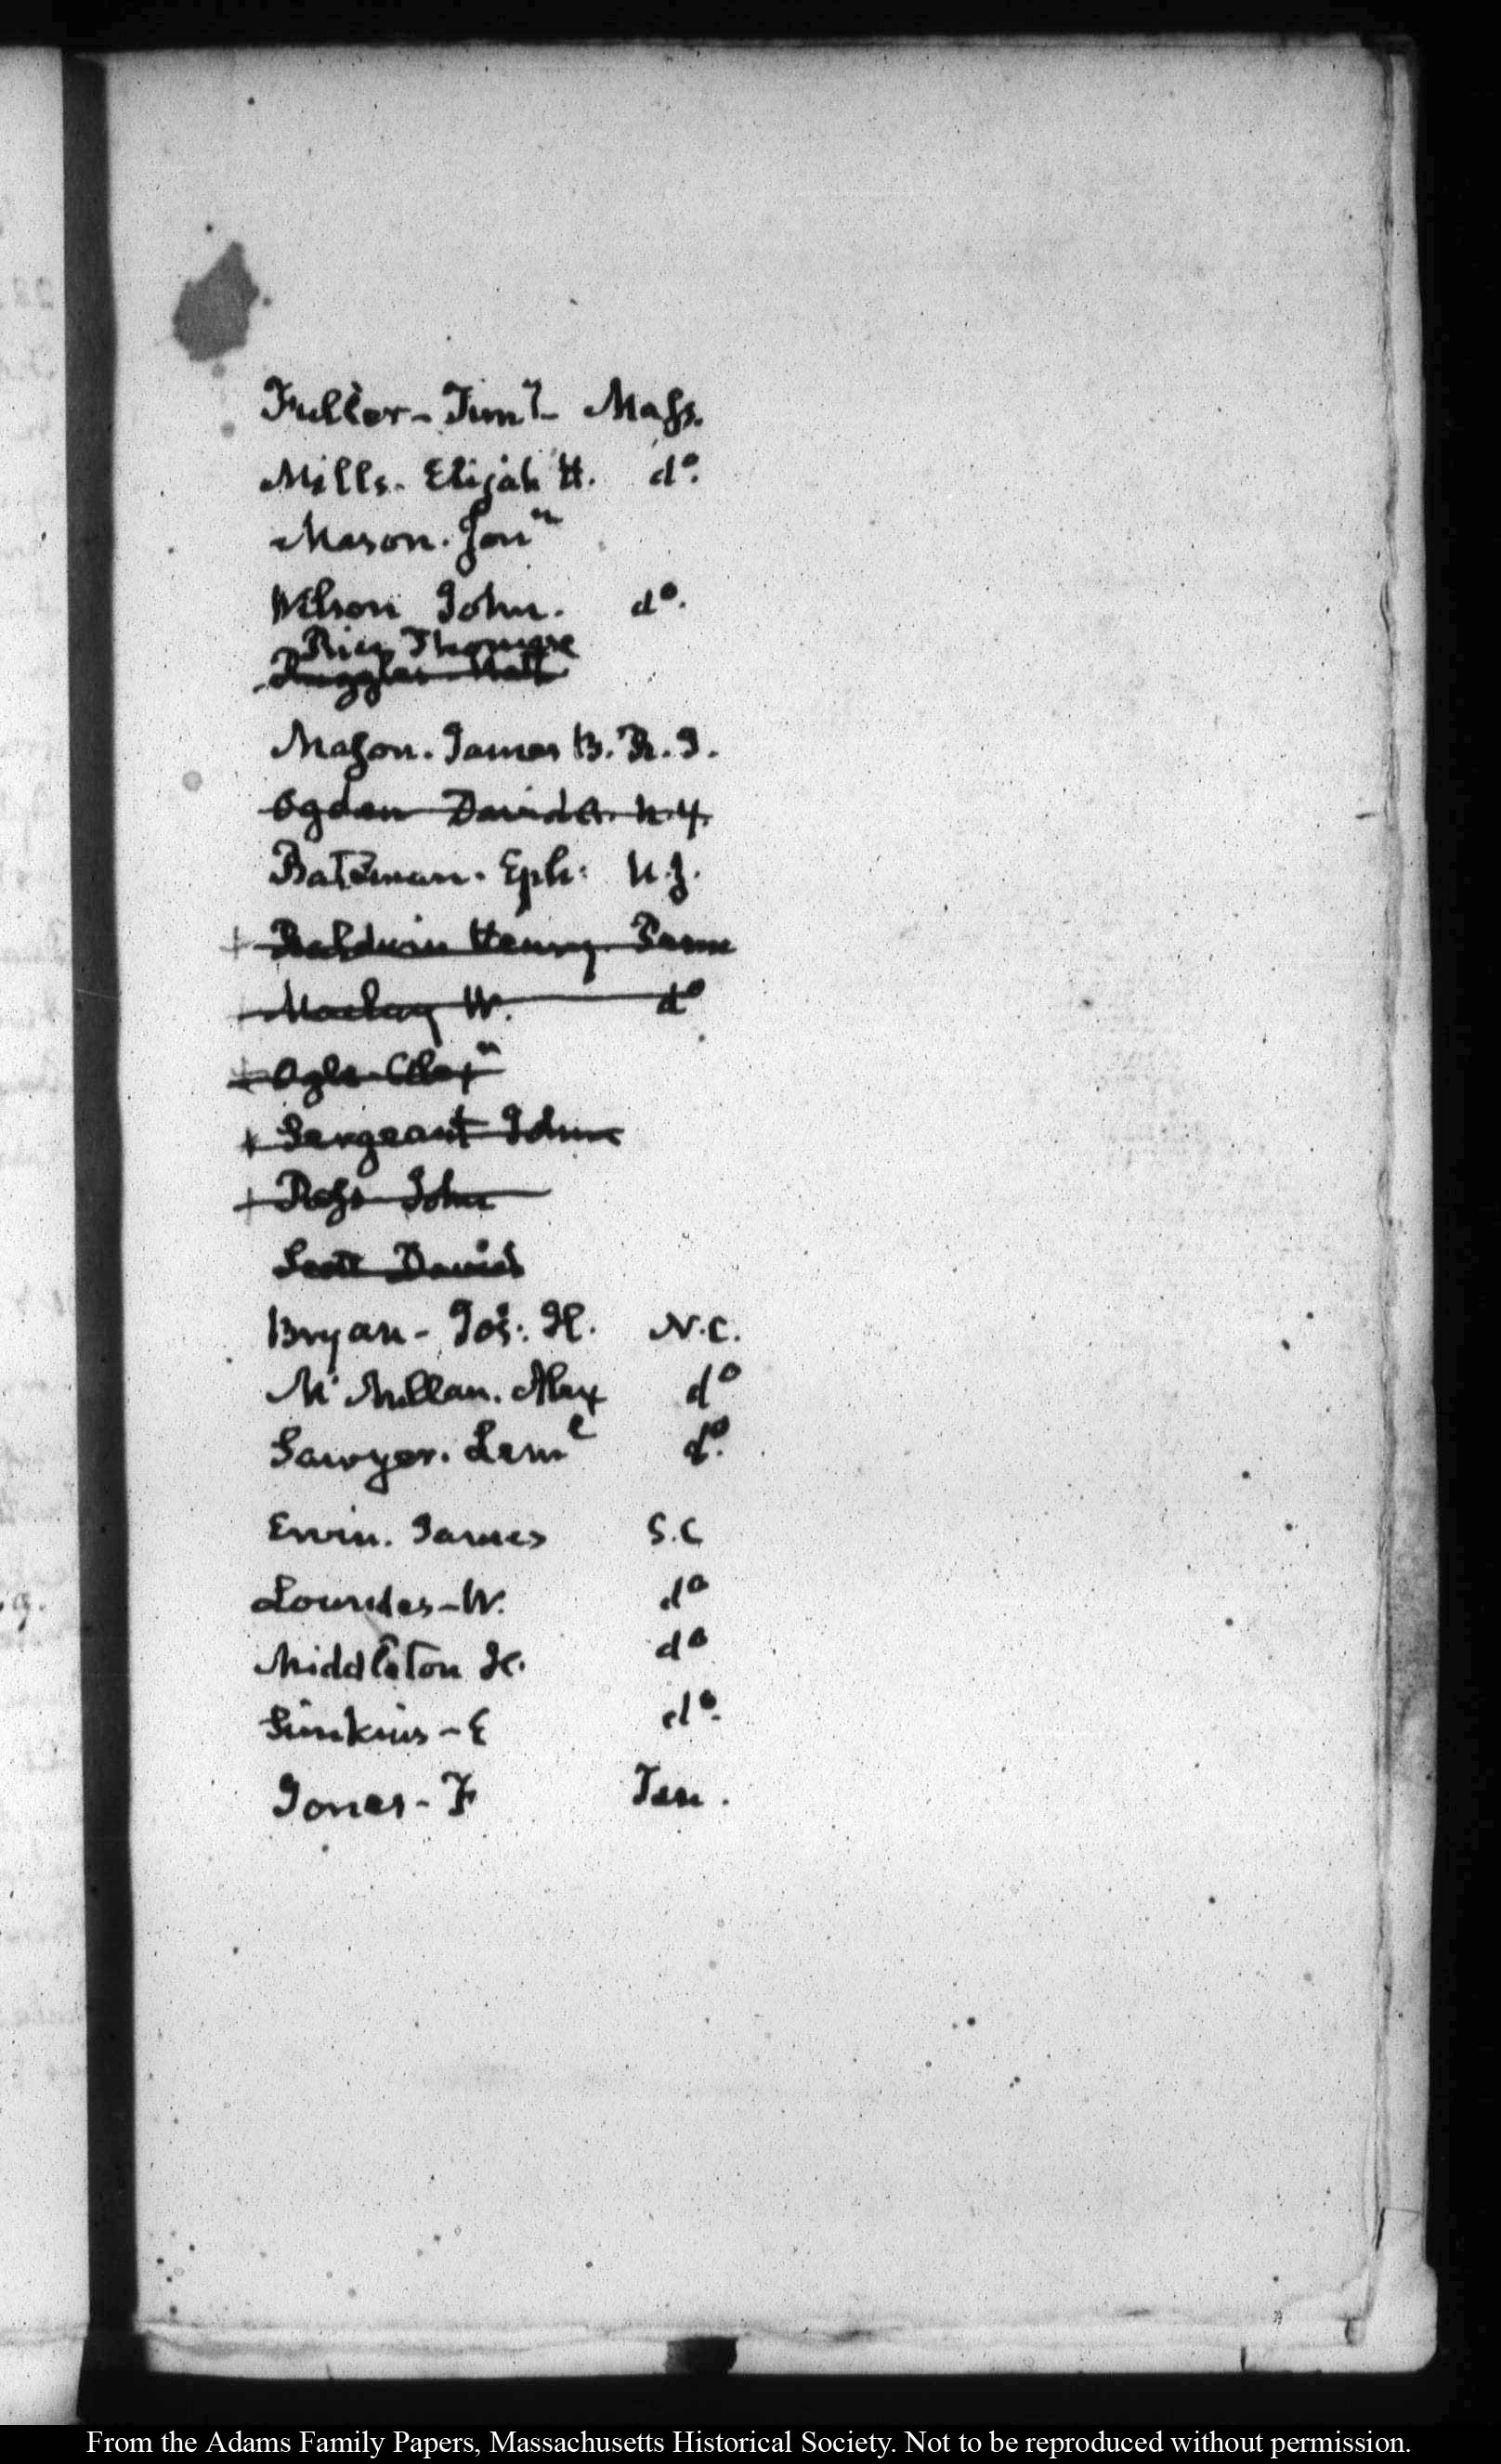 Fuller - Timy - Mass.
Mills. Elijah H. do.
Mason. Jonn
Wilson John. do.
Rice Thomas
Ruggles Natl
Mason. James B. R.I.
Ogden David A. N.Y.
Bateman. Eph: N.J.
+ Baldwin Henry. Penn
+ Maclay W. do
+ Ogle Alexr
+ Sergeant John
+ Ross John
Scott David
Bryan - Jos: H. N.C.
Mc Millan. Alex do
Sawyer. Leml do.
Ervin. James S.C
Lowndes - W. do
Middleton H. do
Simkins - E do.
Jones - F Ten.
From the Adams Family Papers, Massachusetts Historical Society. Not to be reproduced without permission.